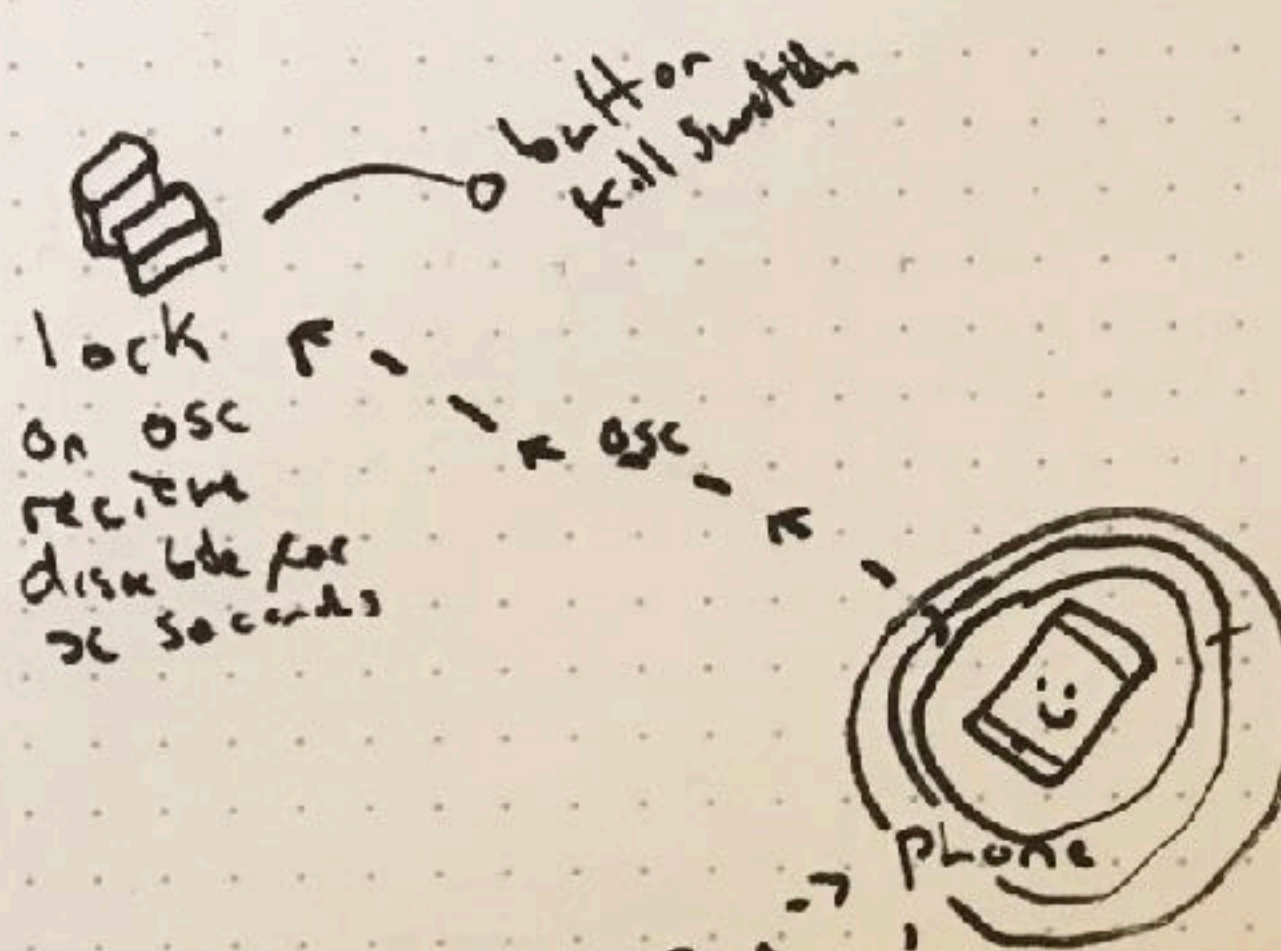 button
kill switch
lock
on osc
recieve
disable for
x seconds
osc
phone